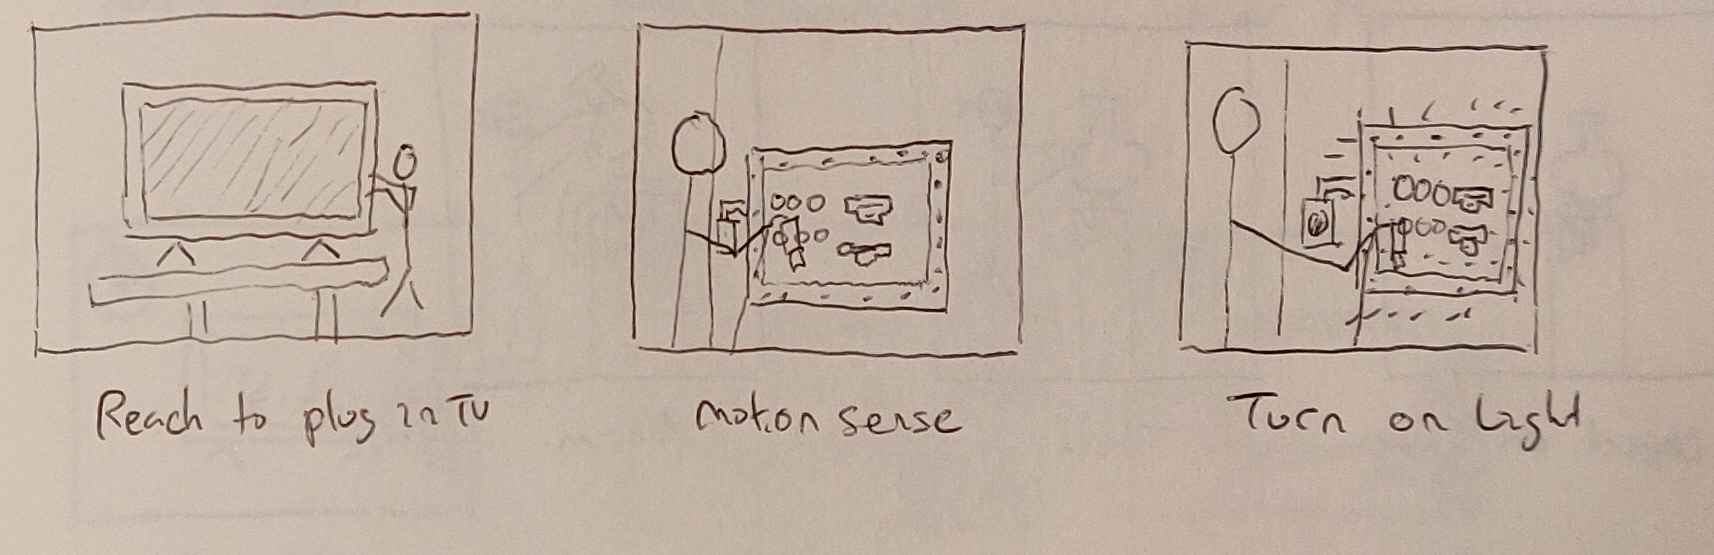 Reach to plug in TV
motion sense
Turn on Light